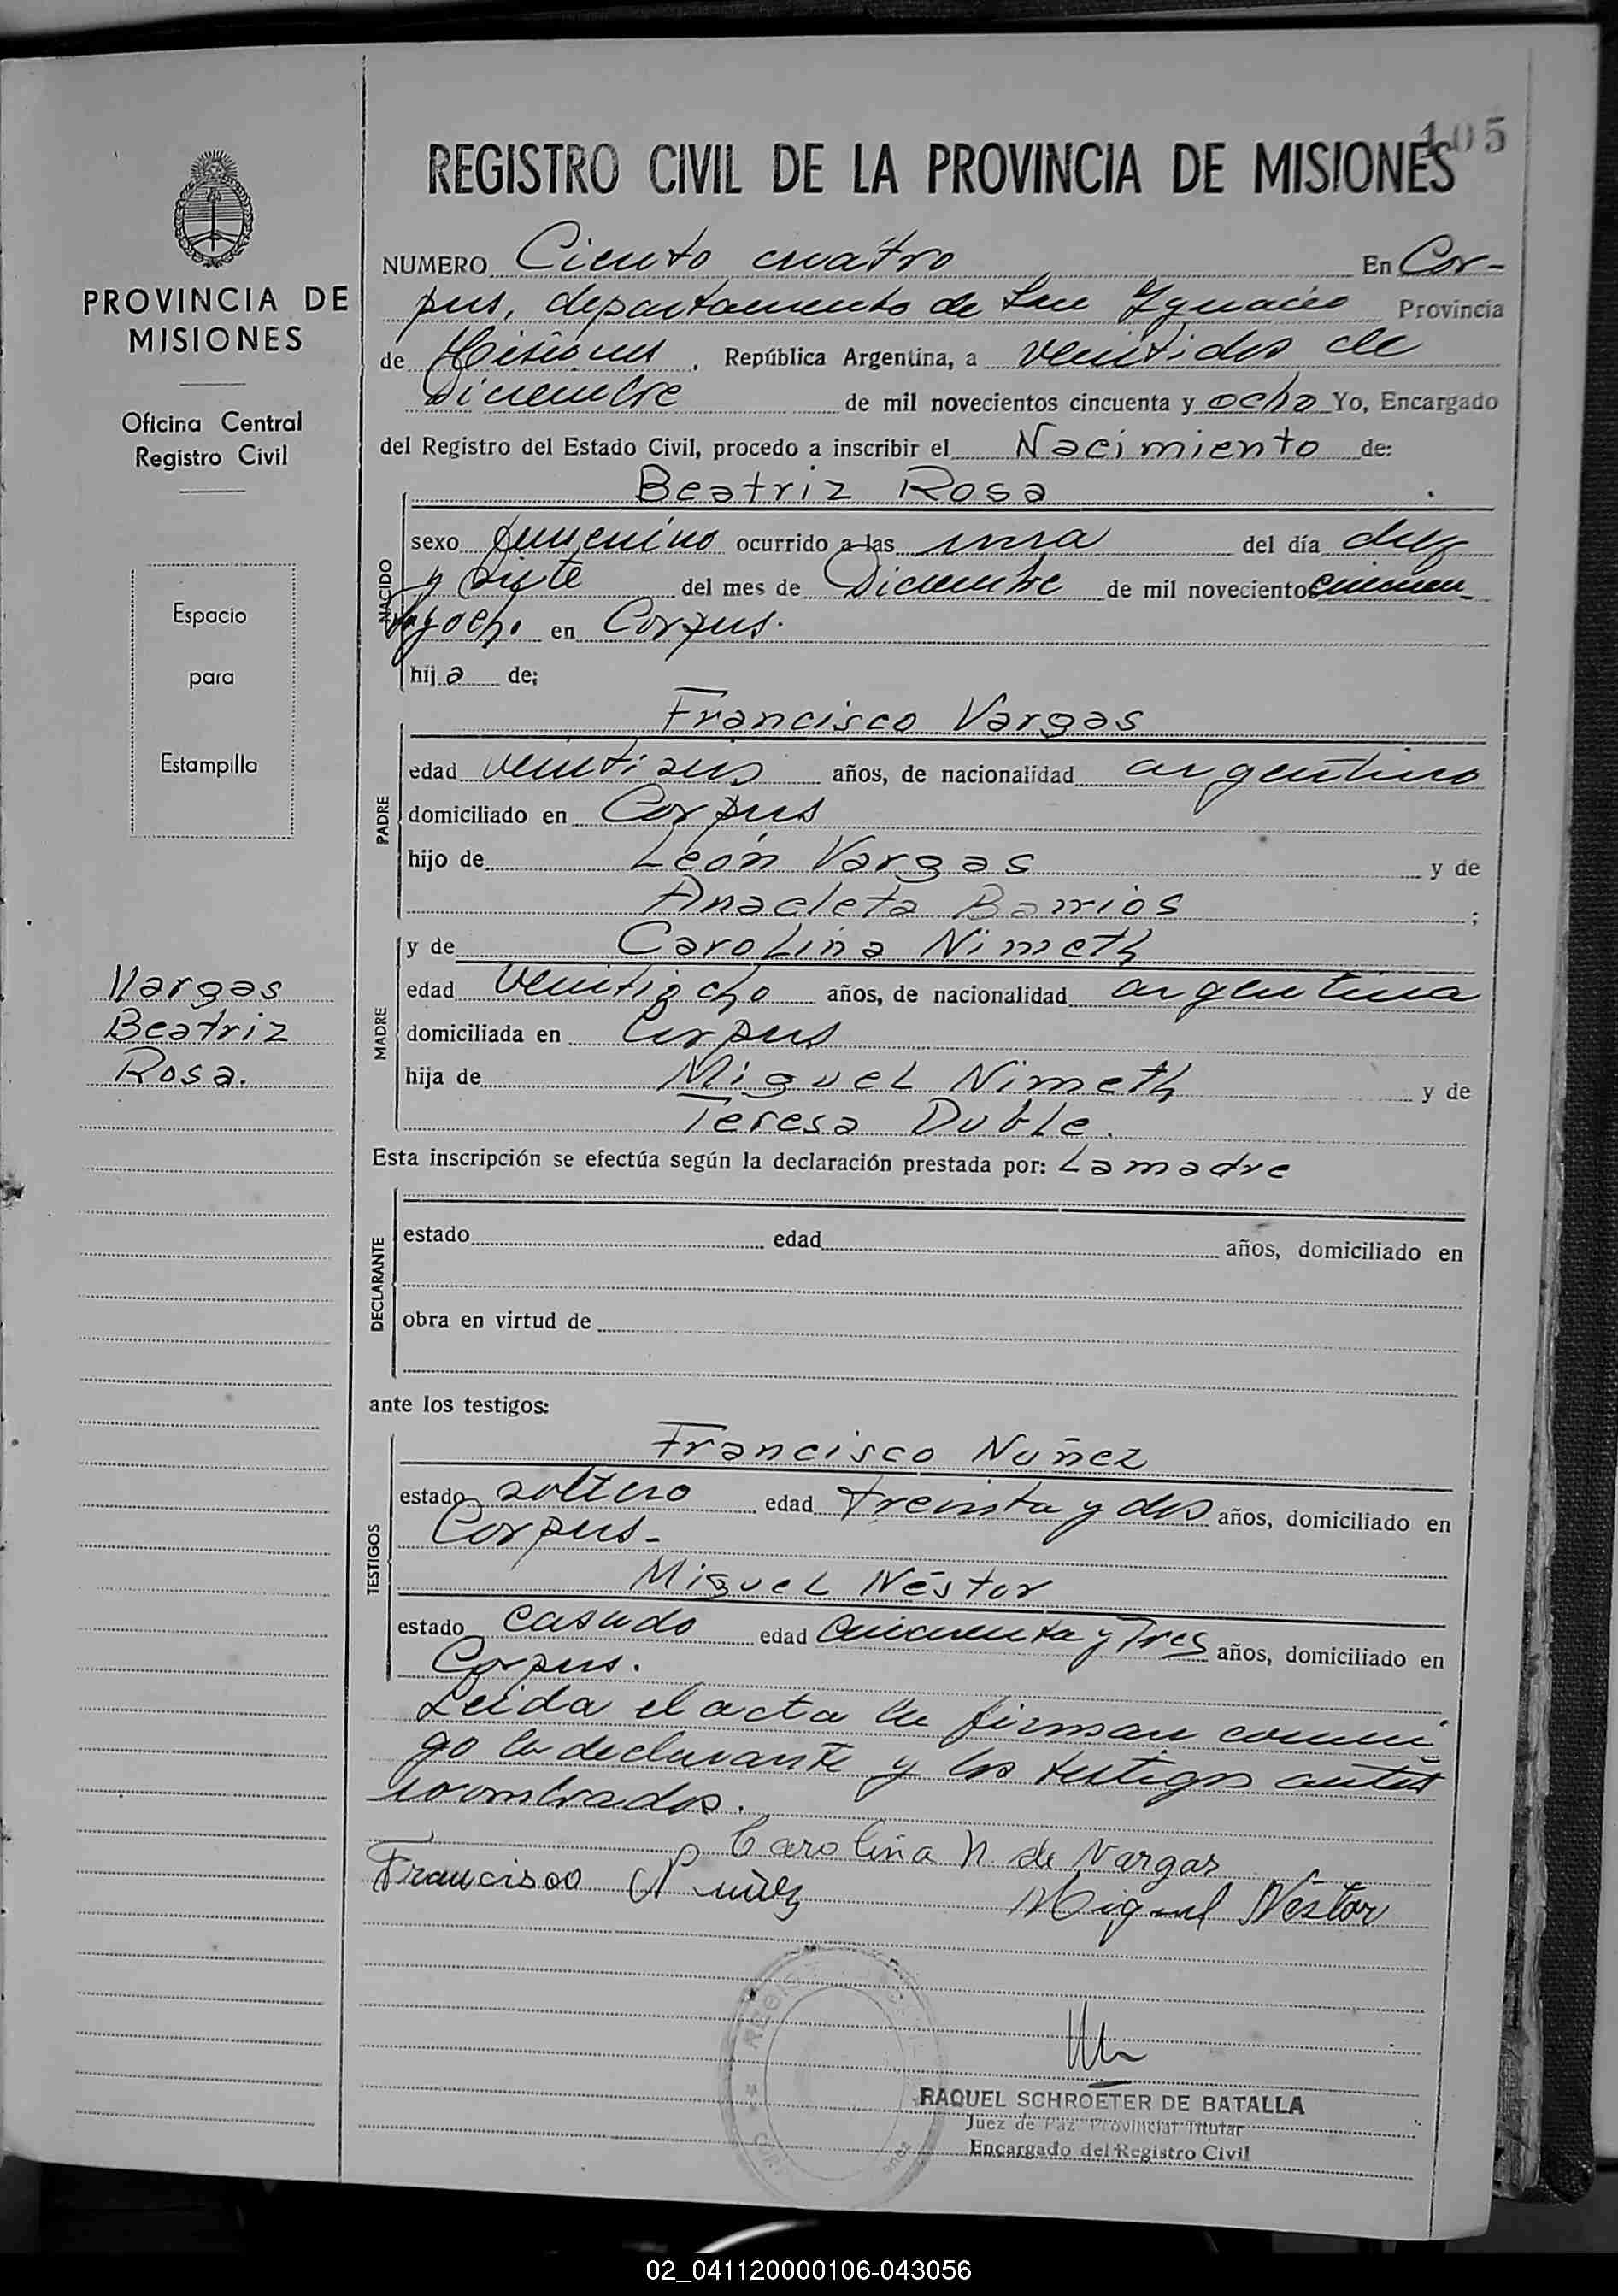 105
REGISTRO CIVIL DE LA PROVINCIA DE MISIONES
PROVINCIA DE
MISIONES
Oficina Central
Registro Civil
Espacio
para
Estampilla
Vargas
Beatriz
Rosa.
NUMERO Ciento cuatro En Cor-
pus, departamento de San Ygnacio Provincia
de Misiones, República Argentina, a veintidos de
Diciembre de mil novecientos cincuenta y ocho Yo, Encargado
del Registro del Estado Civil, procedo a inscribir el Nacimiento de:
Beatriz Rosa
NACIDO
sexo femenino ocurrido a las una del día diez
y siete del mes de Diciembre de mil novecientos cincuen-
ta y ocho en Corpus.
hija de;
PADRE
Francisco Vargas
edad veintiseis años, de nacionalidad argentino
domiciliado en Corpus
hijo de León Vargas y de
Anacleta Barrios ;
MADRE
y de Carolina Nimeth
edad veintiocho años, de nacionalidad argentina
domiciliada en Corpus
hija de Miguel Nimeth y de
Teresa Duble.
Esta inscripción se efectúa según la declaración prestada por: La madre
DECLARANTE
estado edad años, domiciliado en
obra en virtud de
ante los testigos:
TESTIGOS
Francisco Nuñez
estado soltero edad treinta y dos años, domiciliado en
Corpus-
Miguel Néstor
estado casado edad cincuenta y tres años, domiciliado en
Corpus.
Leida el acta la firman conmi
go la declarante y los testigos antes
nombrados.
Carolina N de Vargas
Francisco Nuñez Miguel Néstor
RAQUEL SCHROETER DE BATALLA
Juez de Paz Provincial Titular
Encargado del Registro Civil
02_041120000106-043056